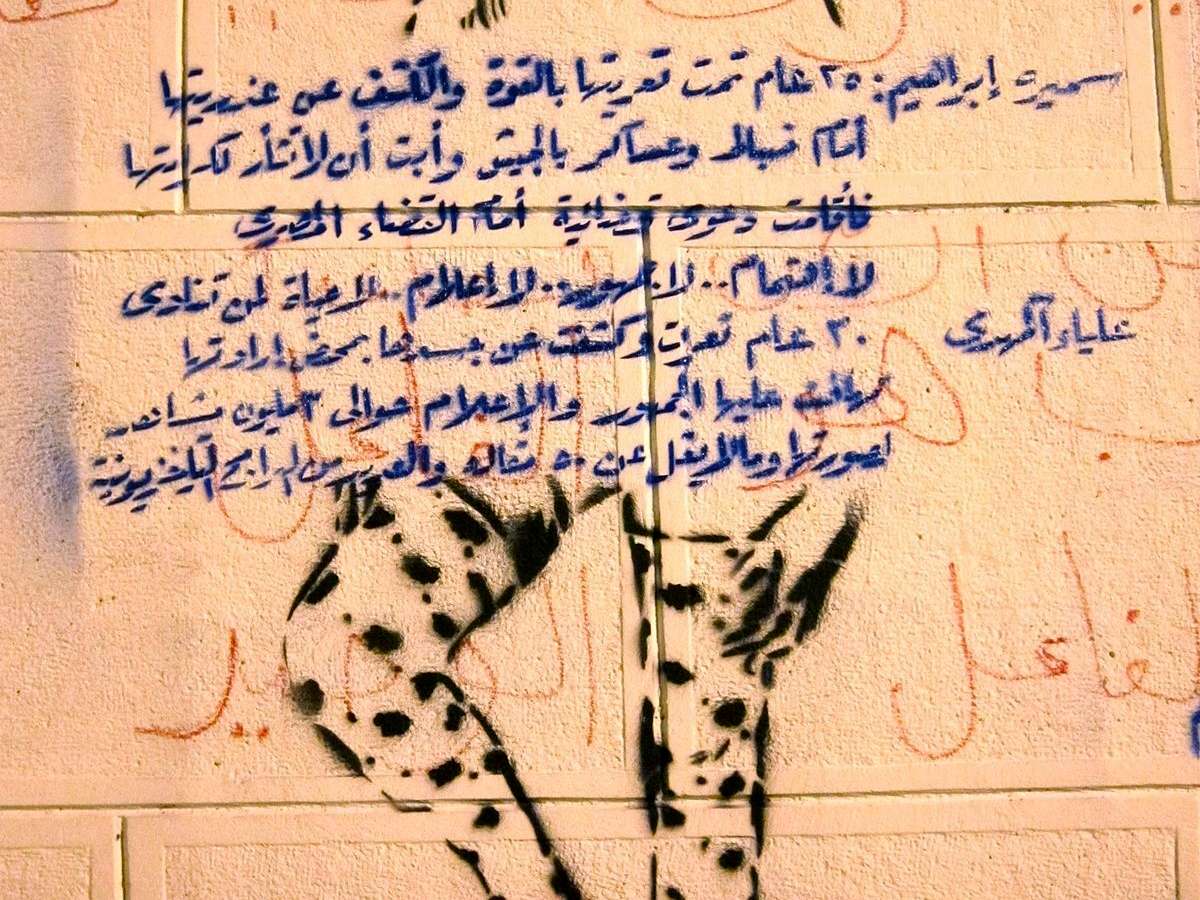 سميرة إبراهيم: ٢٥ عام تمت تعريتها بالقوة والكشف عن عذريتها
أمام ضباط وعساكر بالجيش وأبت أن لا تثأر لكرامتها
فأقامت دعوى قضائية أمام القضاء المصرى
لا اهتمام.. لا جمهور.. لا إعلام.. لا حياة لمن تنادى
علياء المهدى ٢٠ عام تعرت وكشفت عن جسدها بمحض إرادتها
تهافت عليها الجمهور والإعلام حوالى ٣ مليون مشاهد
لصورتها ومالايقل عن ٥٠ مقاله والعديد من البرامج التليفزيونية
الفاعل